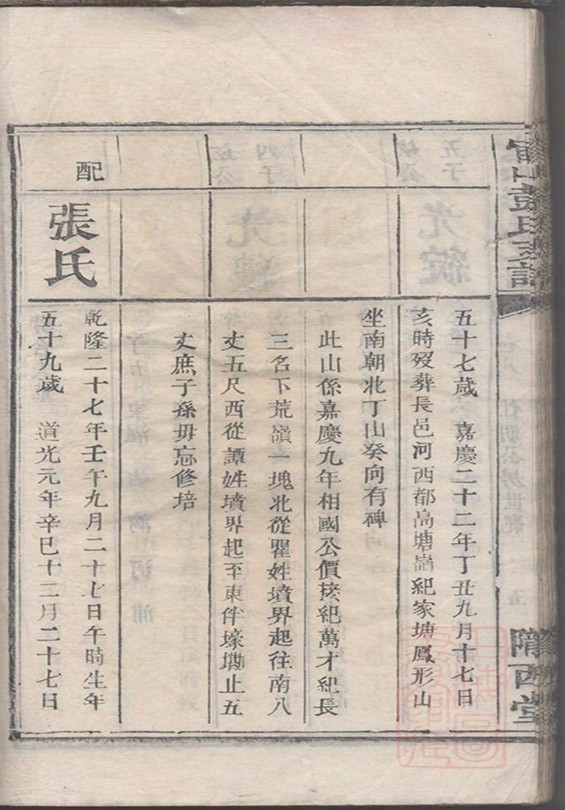 彭氏
隴西堂
五十七歲　嘉慶二十二年丁丑九月十七日
亥時歿葬長邑河西都高塘嶺紀家塘鳳形山
坐南朝北丁山癸向有碑
此山係嘉慶九年相國公價接紀萬才紀長
三名下荒嶺一塊北從瞿姓墳界起往南八
丈五尺西從譚姓墳界起至東伴壕墈止五
丈庶子孫毋忘修培
配
張氏
乾隆二十七年壬午九月二十七日午時生年
五十九歲　道光元年辛巳十二月二十七日